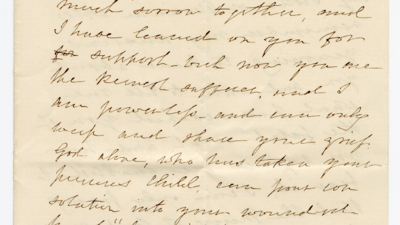 much sorrow together, and
I have leaned on you for
for support - but now you are
the keenest sufferer, and I
am powerless - and can only
weep and share your grief.
God alone, who has taken your
precious child, can pour con
solation into your wounded